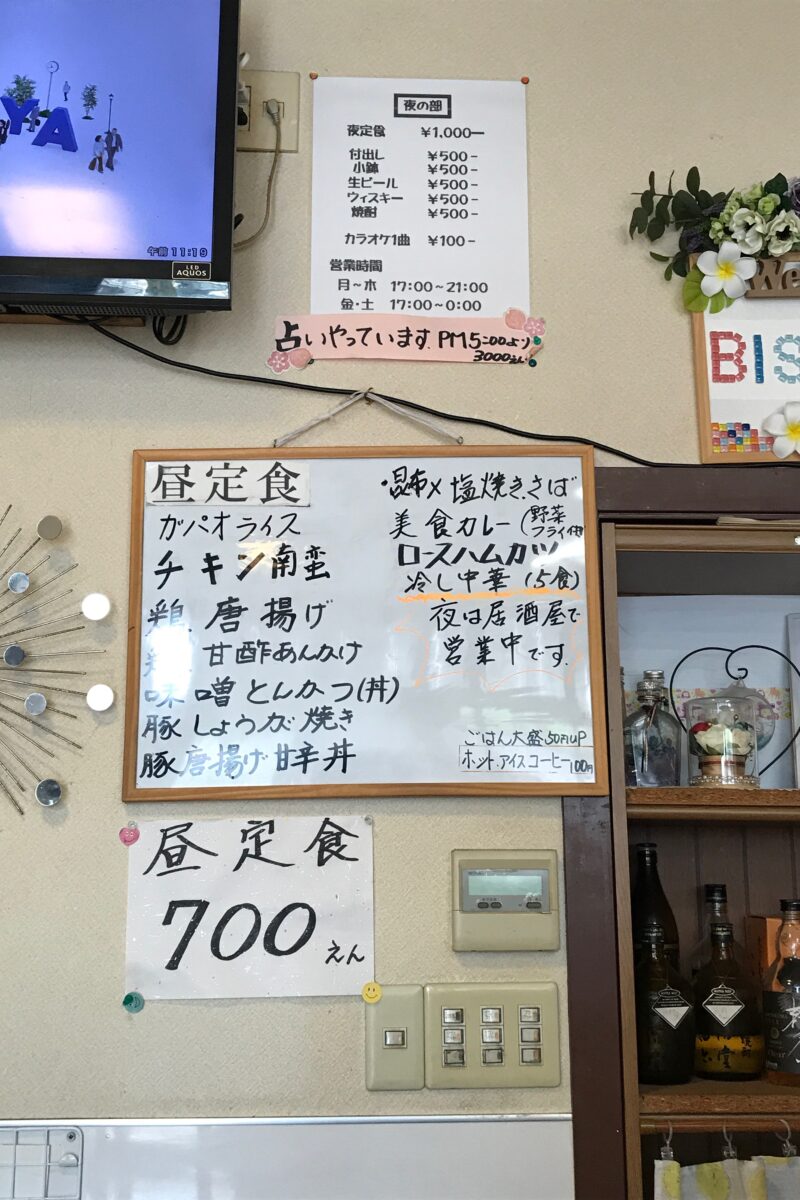 YA
午前11:19
LED
AQUOS
夜の部
夜定食 ¥1,000ー
付出し ¥500-
小鉢 ¥500-
生ビール ¥500-
ウィスキー ¥500-
焼酎 ¥500-
カラオケ1曲 ¥100-
営業時間
月~木 17:00~21:00
金・土 17:00~0:00
占いやっています PM5:00より
3000えん
We
BIS
昼定食
ガパオライス
チキン南蛮
鶏唐揚げ
鶏 甘酢あんかけ
味噌とんかつ(丼)
豚しょうが焼き
豚唐揚げ甘辛丼
・昆布〆塩焼きさば
美食カレー(野菜
フライ付
ロースハムカツ
冷し中華(5食)
夜は居酒屋で
営業中です.
ごはん大盛50円UP
ホット.アイスコーヒー100円
昼定食
700えん